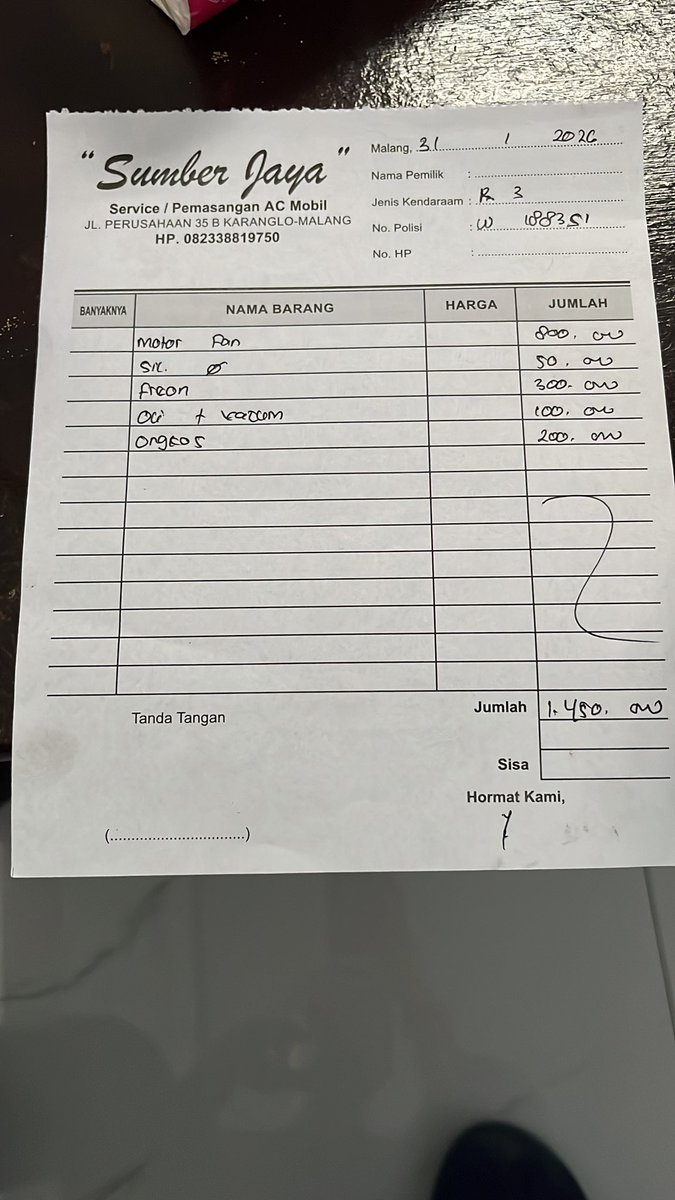 " Sumber Jaya "
Service / Pemasangan AC Mobil
JL. PERUSAHAAN 35 B KARANGLO-MALANG
HP. 082338819750
Malang, 31 1 2026
Nama Pemilik :
Jenis Kendaraam : R 3
No. Polisi : W
No. HP :
BANYAKNYA NAMA BARANG HARGA JUMLAH
Motor Fan 800.000
50.000
Freon 300.000
+ 100.000
Ongkos 200.000
Jumlah 1.450.000
Tanda Tangan
Sisa
Hormat Kami,
(..............................)